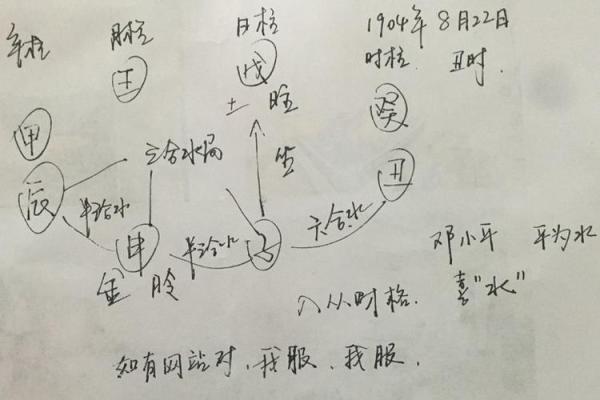 年柱 月柱 日柱 1904年8月22日
壬 戊 时柱. 丑时.
土 旺 癸
甲
三合水局
辰 丑
半合水 申 半三合水 子 六合水
邓小平 平为水
金 喜“水”
入从财格.
如有网站对、我服、我服.